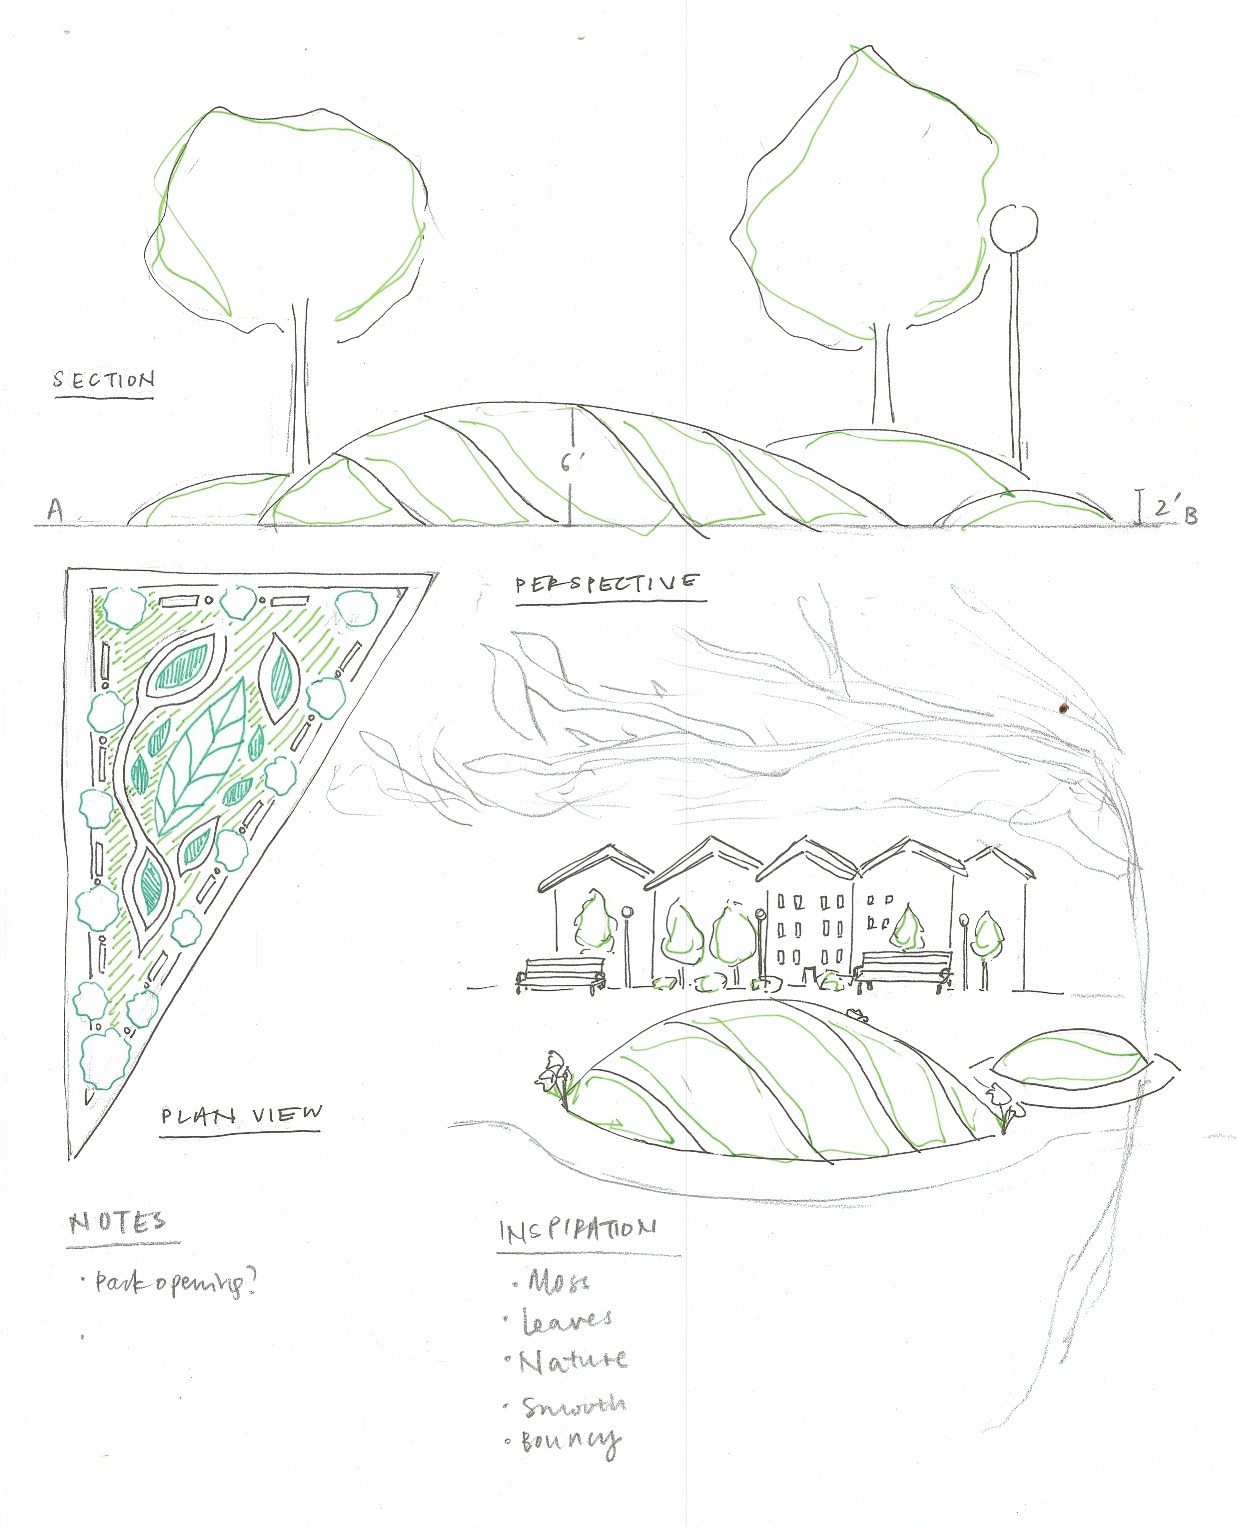 SECTION
6'
A
2'
B
PERSPECTIVE
PLAN VIEW
NOTES
· Park opening?
·
INSPIRATION
· Moss
· Leaves
· Nature
· Smooth
· Bouncy